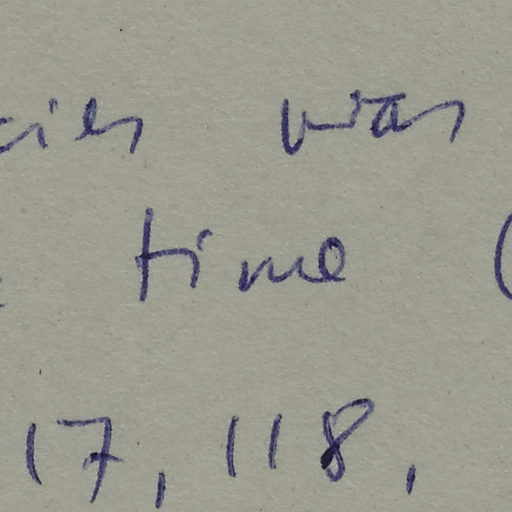 cies was
time (
17, 118,